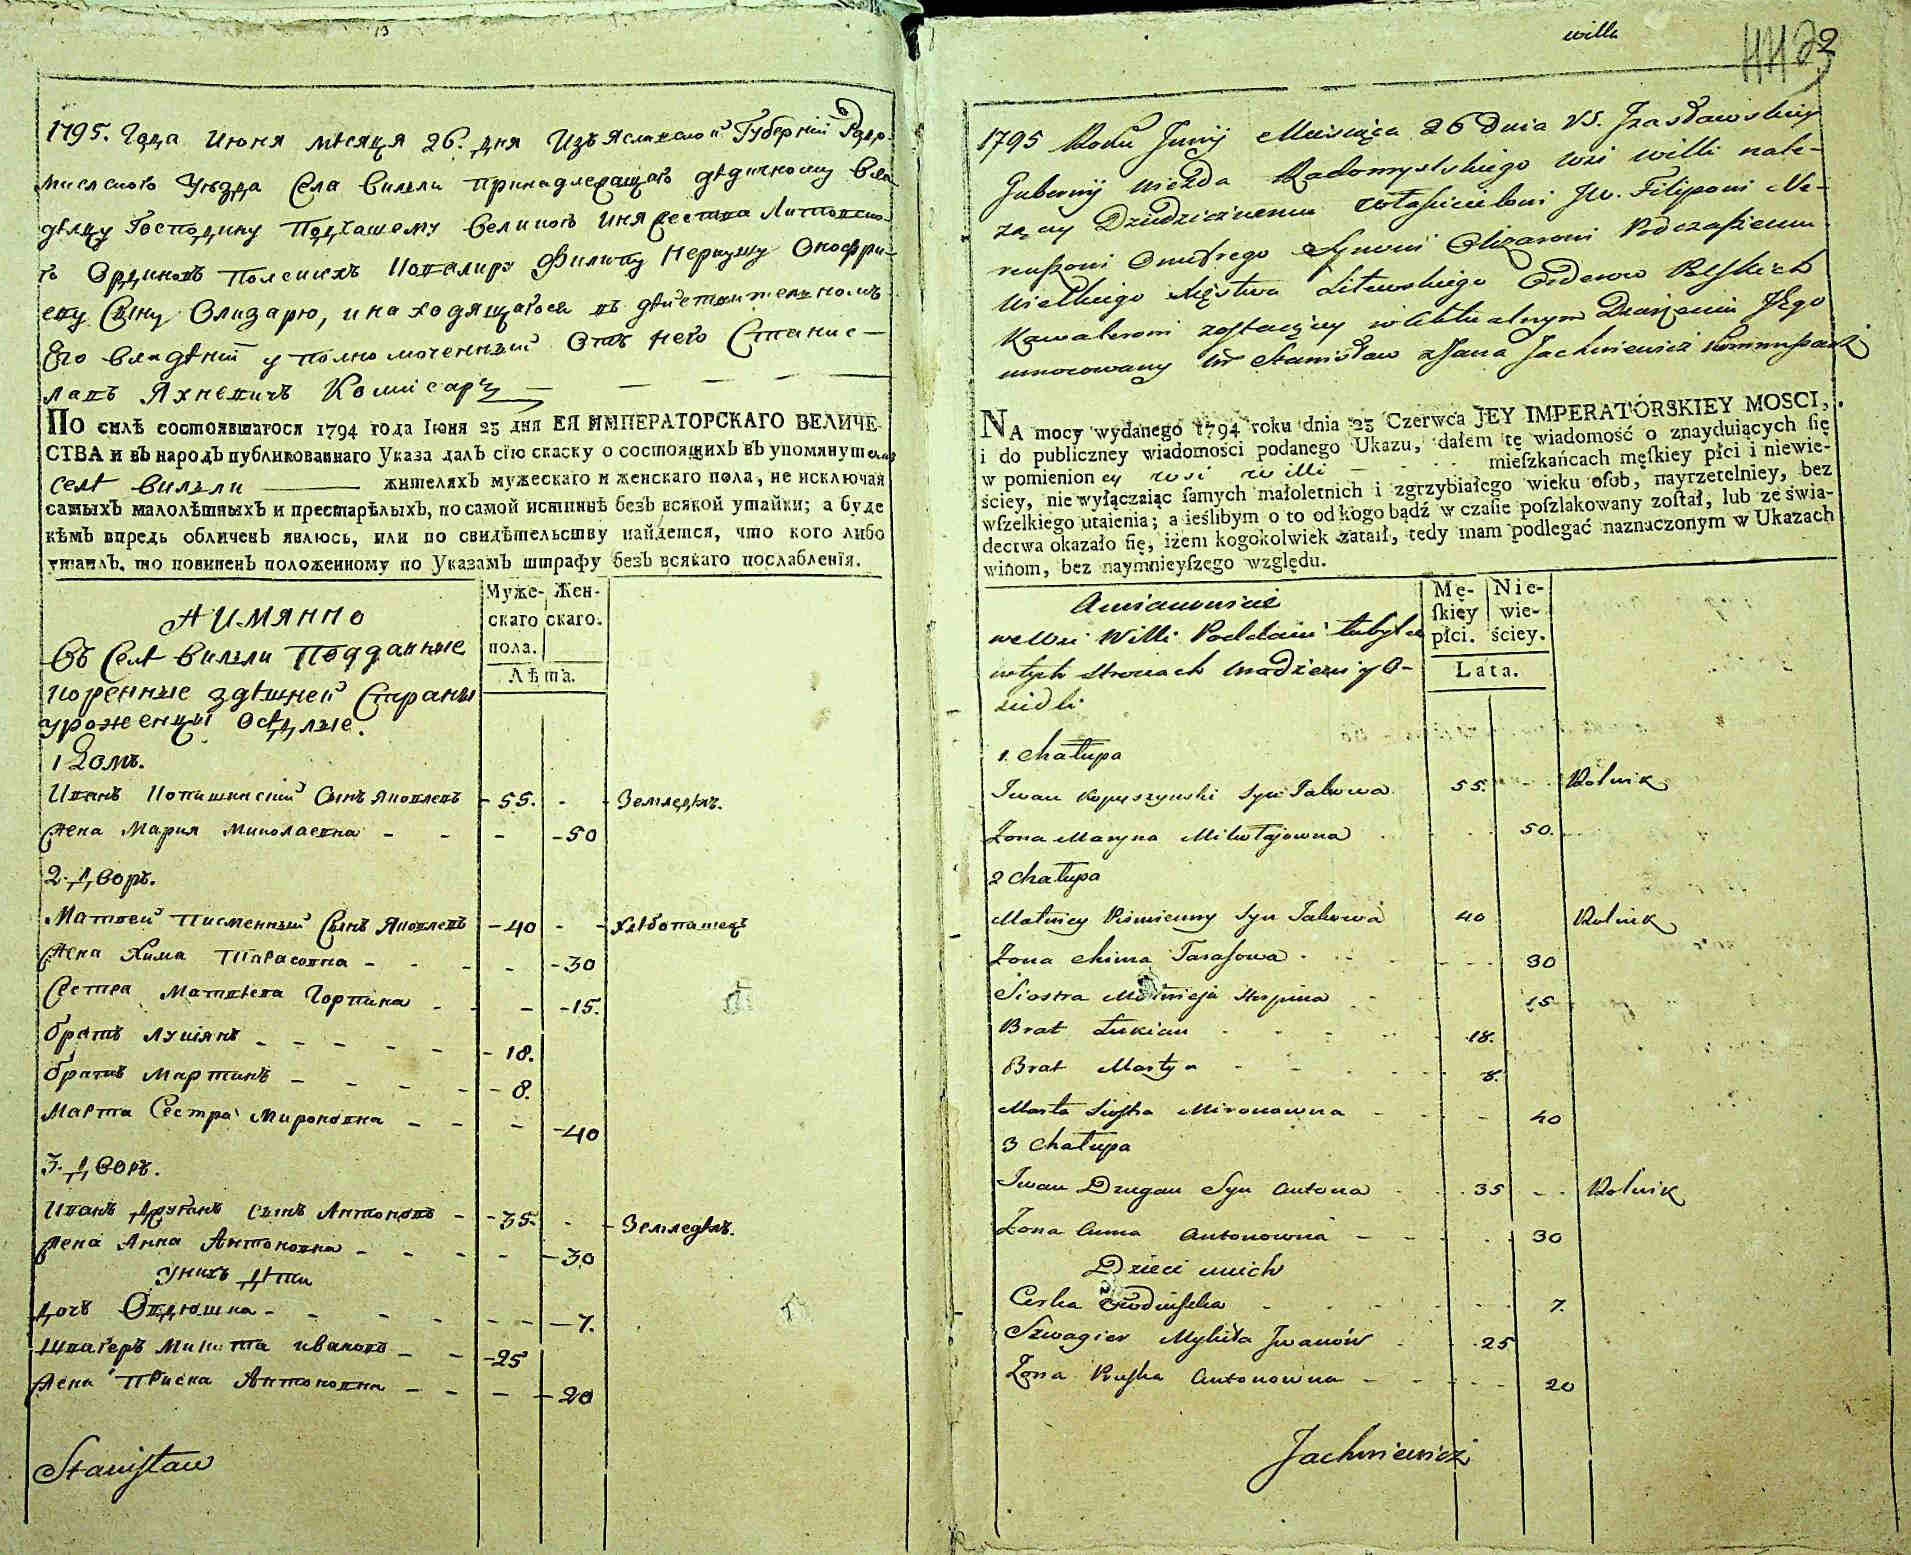 13
1795. Года Июня мѣсяца 26. дня Изъяславской Губернïи Радо-
мыслского Уѣзда Села Вилли принадлежащаго дѣдичному вла-
дѣлцу Господину Подчашему Великого Княжества Литовско-
го Ординовъ Полскихъ Кавалиру Филипу Онофри-
еву Сыну Олизарю, и находящагося въ дѣйствительномъ
Его владѣнïй уполномоченный отъ него Станис-
лавъ Яхневичъ Комисаръ
По силѣ состоявшагося 1794 года Iюня 23 дня ЕЯ ИМПЕРАТОРСКАГО ВЕЛИЧЕ-
СТВА и въ народъ публикованнаго Указа далъ сïю скаску о состоящихъ въ упомянутомъ
селѣ Вилли жителяхъ мужескаго и женскаго пола, не исключая
самыхъ малолѣтныхъ и престарѣлыхъ, по самой истиннѣ безъ всякой утайки; а буде
кѣмъ впредь обличенъ явлюсь, или по свидѣтельству найдется, что кого либо
утаилъ, то повиненъ положенному по Указамъ штрафу безъ всякаго послабленïя.
Муже- Жен-
скаго скаго.
пола.
Лѣта.
А имянно
Въ Селѣ Вилли Подданные
коренные здѣшней Страны
уроженцы осѣдлые.
1 Домъ.
Иванъ Копишинский Сынъ Яковлевъ - 55. - Земледѣл.
Жена Мария Миколаевна - - - - 50
2. Дворъ.
Матвей Писменный Сынъ Яковлевъ - 40 - - Хлѣбопашецъ
Жена Хима Тарасовна - - - - - 30
Сестра Матвѣева Горпина - - - - 15.
братъ Лукïянъ - - - - - - 18.
братъ Мартинъ - - - - - 8.
Марта Сестра Мироновна - - - - 40
3. Дворъ.
Иванъ Друганъ сынъ Антоновъ - - 35. - - Земледѣл.
Жена Анна Антоновна - - - - - 30
У нихъ Дѣти
дочь Овдюшка - - - - - - - 7.
Швагеръ Микита Ивановъ - - - 25
Жена Приска Антоновна - - - - - 20
Stanisław
willa
1795 Roku Junij Miesiąca 26 Dnia VS. Jzasławskiey
Gubernij Uiezda Radomyslskiego wsi Willi nale-
żącey Dziedzicznemu własicielowi JW. Filipowi Ne-
reuszowi Onufrego Synowi Olizarowi Podczaszemu
Wielkiego Xięstwa Litewskiego Orderow Polskich
Kawalerowi zostaiącey w aktualnym Dzierżeniu Jego
umocowany Ur Stanisław z Jana Jachniewicz Kommissarz
NA mocy wydanego 1794 roku dnia 23 Czerwca JEY IMPERATORSKIEY MOSCI,
i do publiczney wiadomości podanego Ukazu, dałem tę wiadomość o znayduiących ſię
w pomienioney wsi Willi mieſzkańcach męſkiey płci i niewie-
ściey, nie wyłączaiąc ſamych małoletnich i zgrzybiałego wieku oſob, nayrzetelniey, bez
wſzelkiego utaienia; a ieślibym o to od kogo bądź w czaſie poſzlakowany zoſtał, lub ze świa-
dectwa okazało ſię, iżem kogokolwiek zataił, tedy mam podlegać naznaczonym w Ukazach
winom, bez naymnieyſzego względu.
Mę- Nie-
ſkiey wie-
płci. ściey.
Lata.
Amianowicie
we Wsi Willi Poddani tubylce
w tych stronach urodzeni y O-
siedli
1. Chałupa
Jwan Kopyszynski Syn Jakowa 55. - - Rolnik
Żona Maryna Mikołajowna 50.
2 Chałupa
Matwiey Pismienny Syn Jakowa 40 Rolnik
Żona Chima Tarasowa 30
Siostra Matwieja Horpina 15
Brat Łukian 18.
Brat Martyn 8.
Marta Siostra Mironowna 40
3 Chałupa
Jwan Drugan Syn Antona 35 - . Rolnik
Żona Anna Antonowna 30
Dzieci u nich
Corka Owdiuszka 7.
Szwagier Mykita Jwanów 25
Żona Pryska Antonowna 20
Jachniewicz